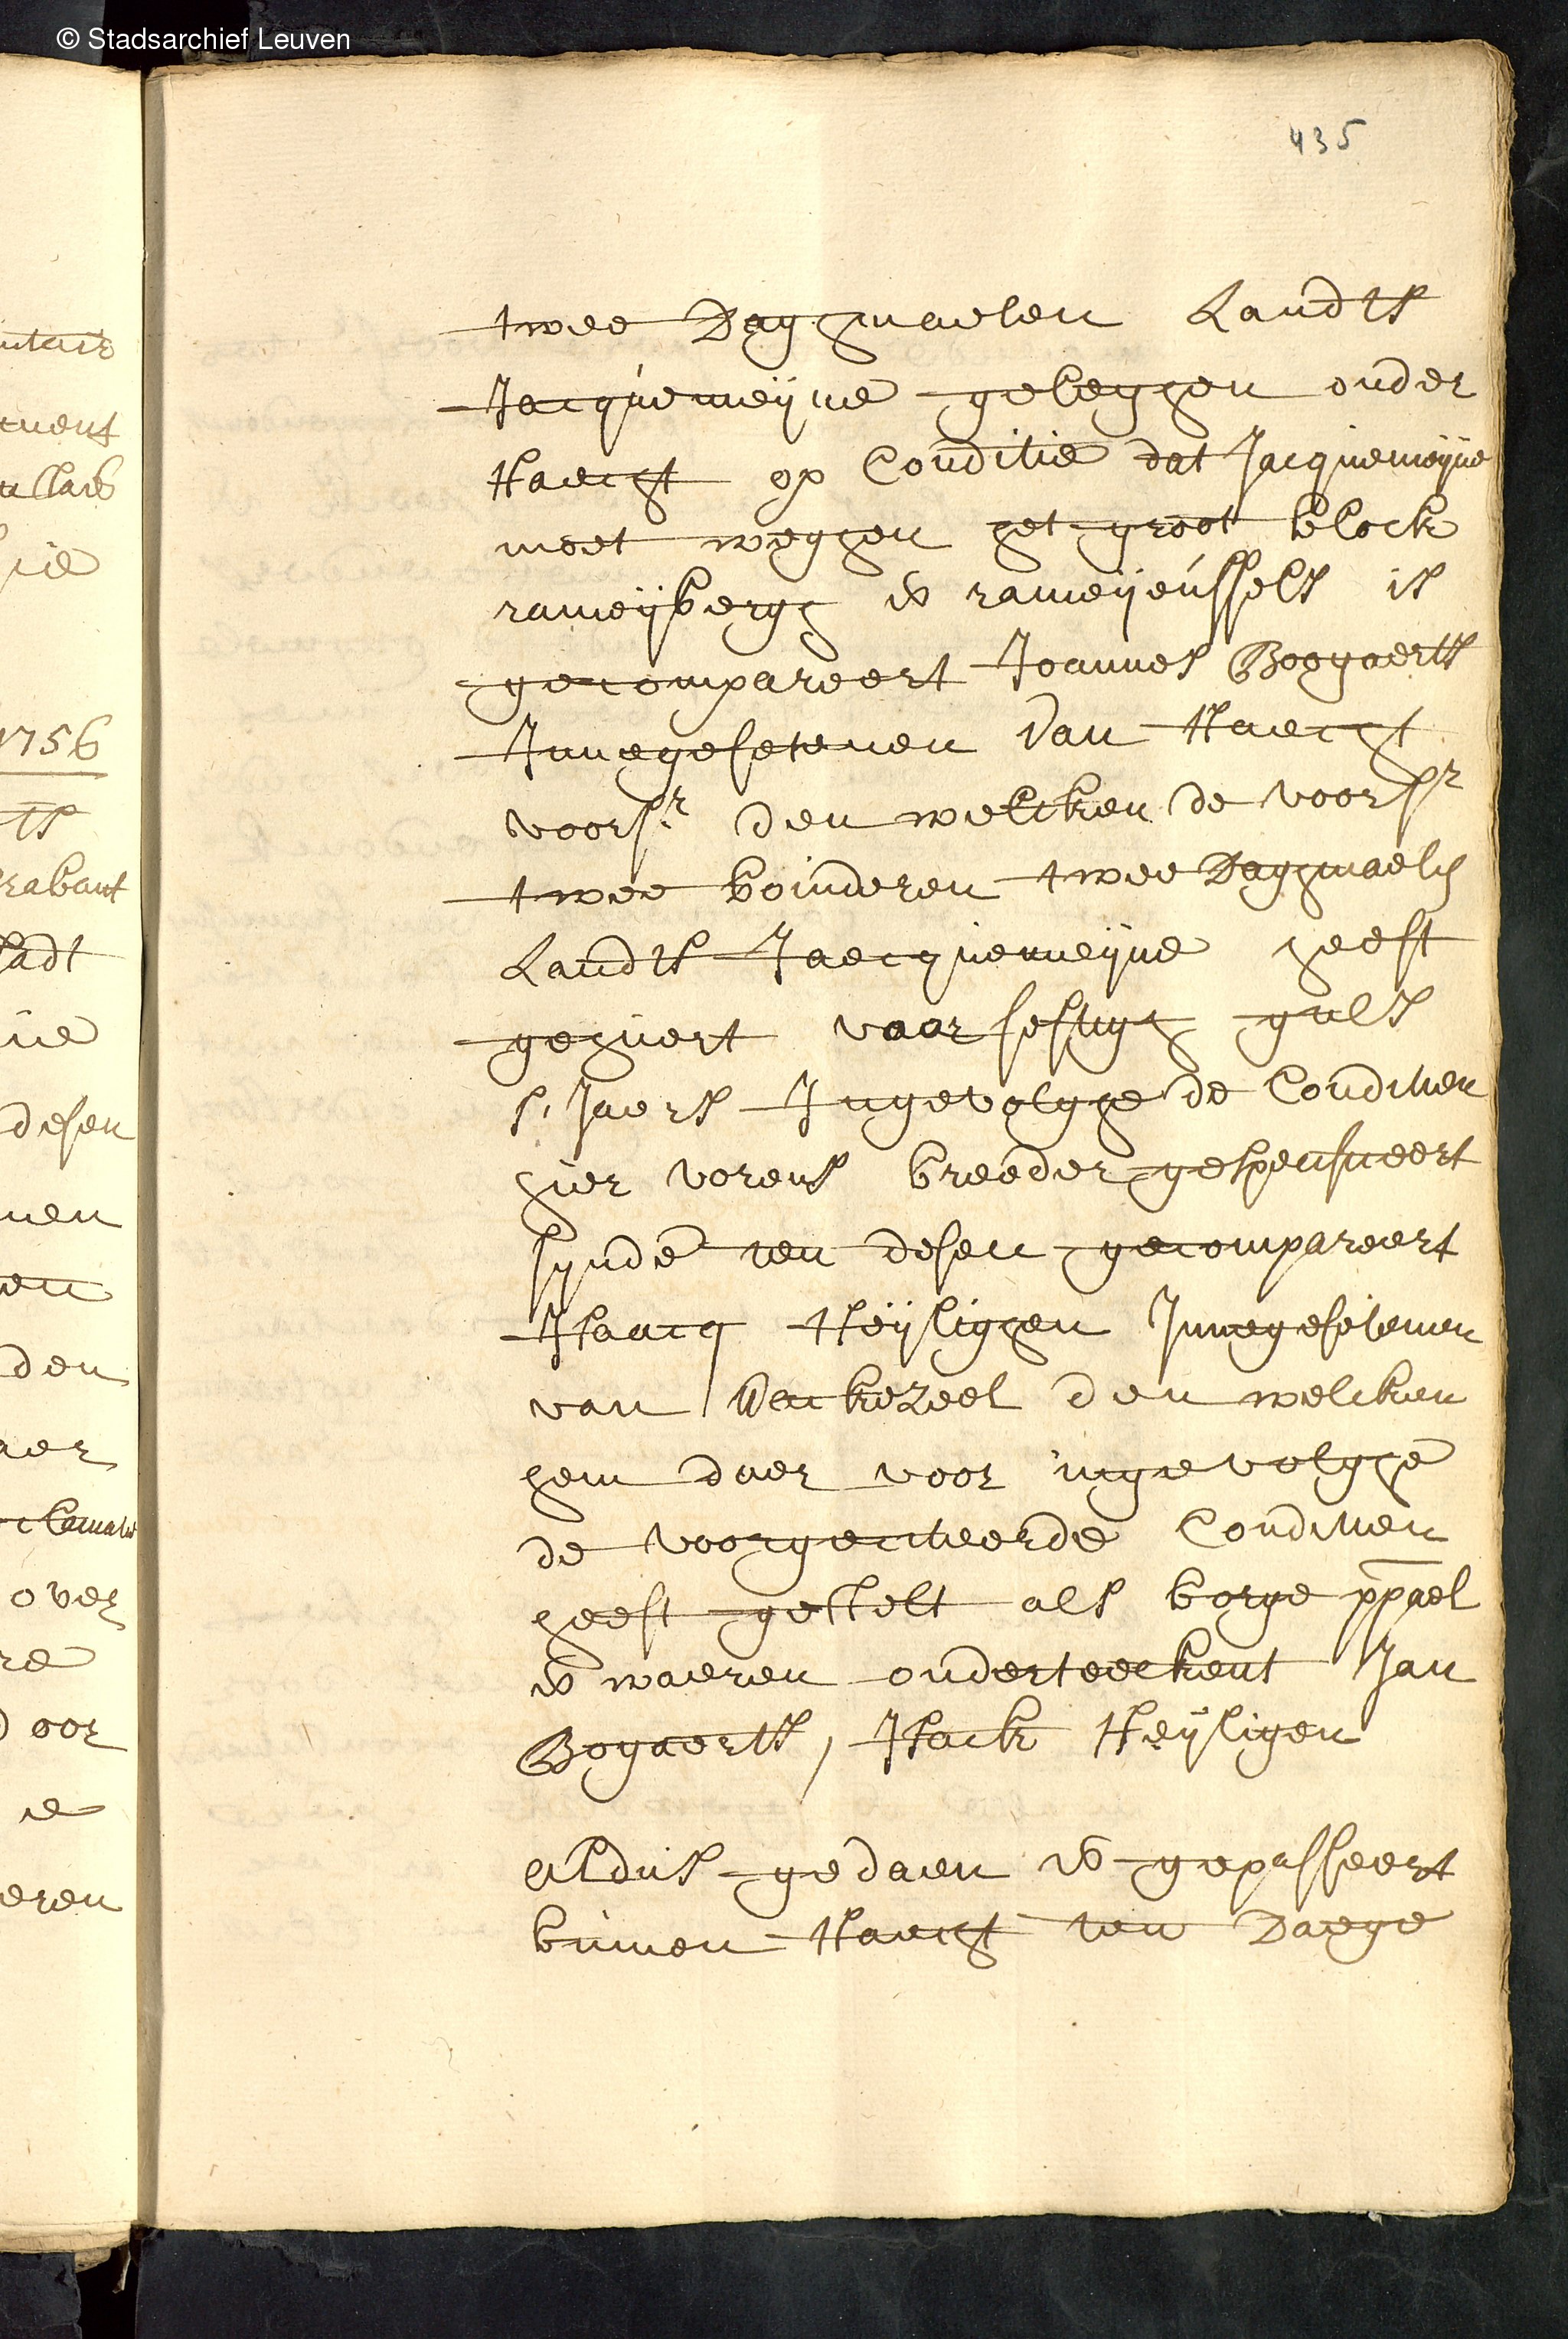 © Stadsarchief Leuven
435
twee Daghmaelen Landts
Jacquemeijne geleghen onder
Haecht op Conditie dat Jacquemeijne
moet weghen het groot block
rameijbergh
gecompareert Joannes Boogaerts
Innegesetenen van Haecht
voors.r den welcken de voorsr
twee boinderen twee Daghmaelen
Landts Jaecquemeijne heeft
gehuert voor sestigh guls
s. Jaers Ingevolghe de Conditien
hier vorens breeder gespecificeert
synde ten desen gecompareert
Isaacq Heijlighen Innegesetenen
van Wackezeel den welcken
hem daer voor ingevolghe
de voorgeciteerde Conditien
heeft gestelt als borge ppael
ende waeren onderteeckent Jan
Bogaerts, Isack Heijligen
Aldus gedaen ende gepasseert
binnen Haecht ten Daege
1756
rabant
desen
den
over
oor
eren